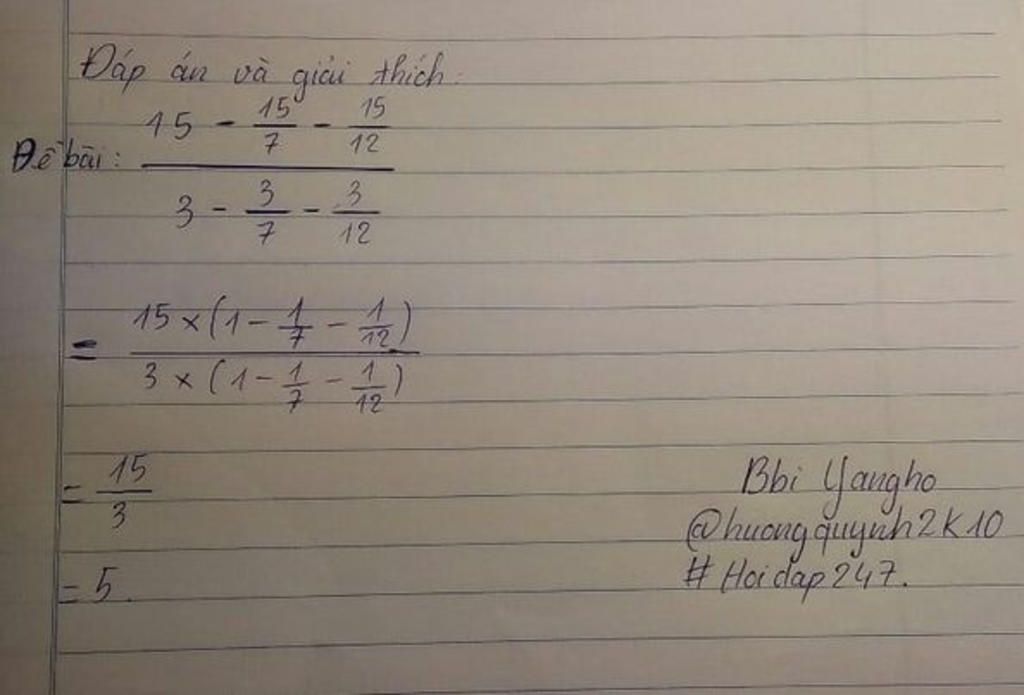 Đáp án và giải thích:
Đề bài: (15 - 15/7 - 15/12) / (3 - 3/7 - 3/12)
= (15 × (1 - 1/7 - 1/12)) / (3 × (1 - 1/7 - 1/12))
= 15/3
= 5.
Bbi Yangho
@huongquynh2k10
# Hoidap247.